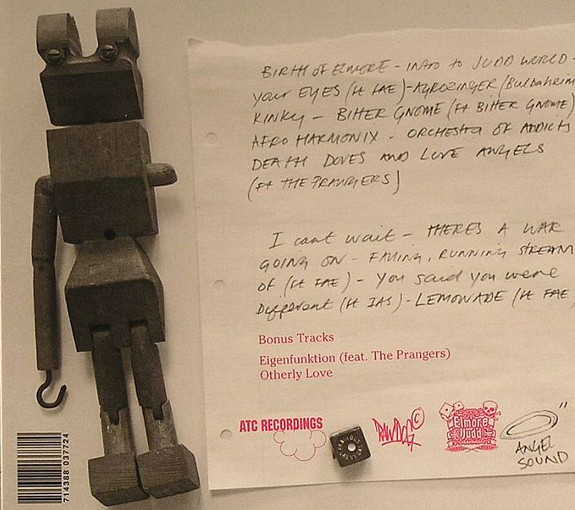 BIRTH OF ELMORE - INTRO to JUDD WORLD -
your EYES (ft FAE) - AGROZINGER (Bulbaheim
KINKY - BITTER GNOME (Ft BITTER GNOME)
AFRO HARMONIX - ORCHESTRA OF ADDICTS
DEATH DOVES AND LOVE ANGELS
(ft THE PRANGERS)
I cant wait - THERES A WAR
GOING ON - FALLING, RUNNING STREAM
OF (ft FAE) - You said you were
Different (ft IAS) - LEMONADE (ft FAE)
Bonus Tracks
Eigenfunktion (feat. The Prangers)
Otherly Love
ATC RECORDINGS
RAWDOG ©
Elmore
Judd
ANGEL
SOUND
714388 037724